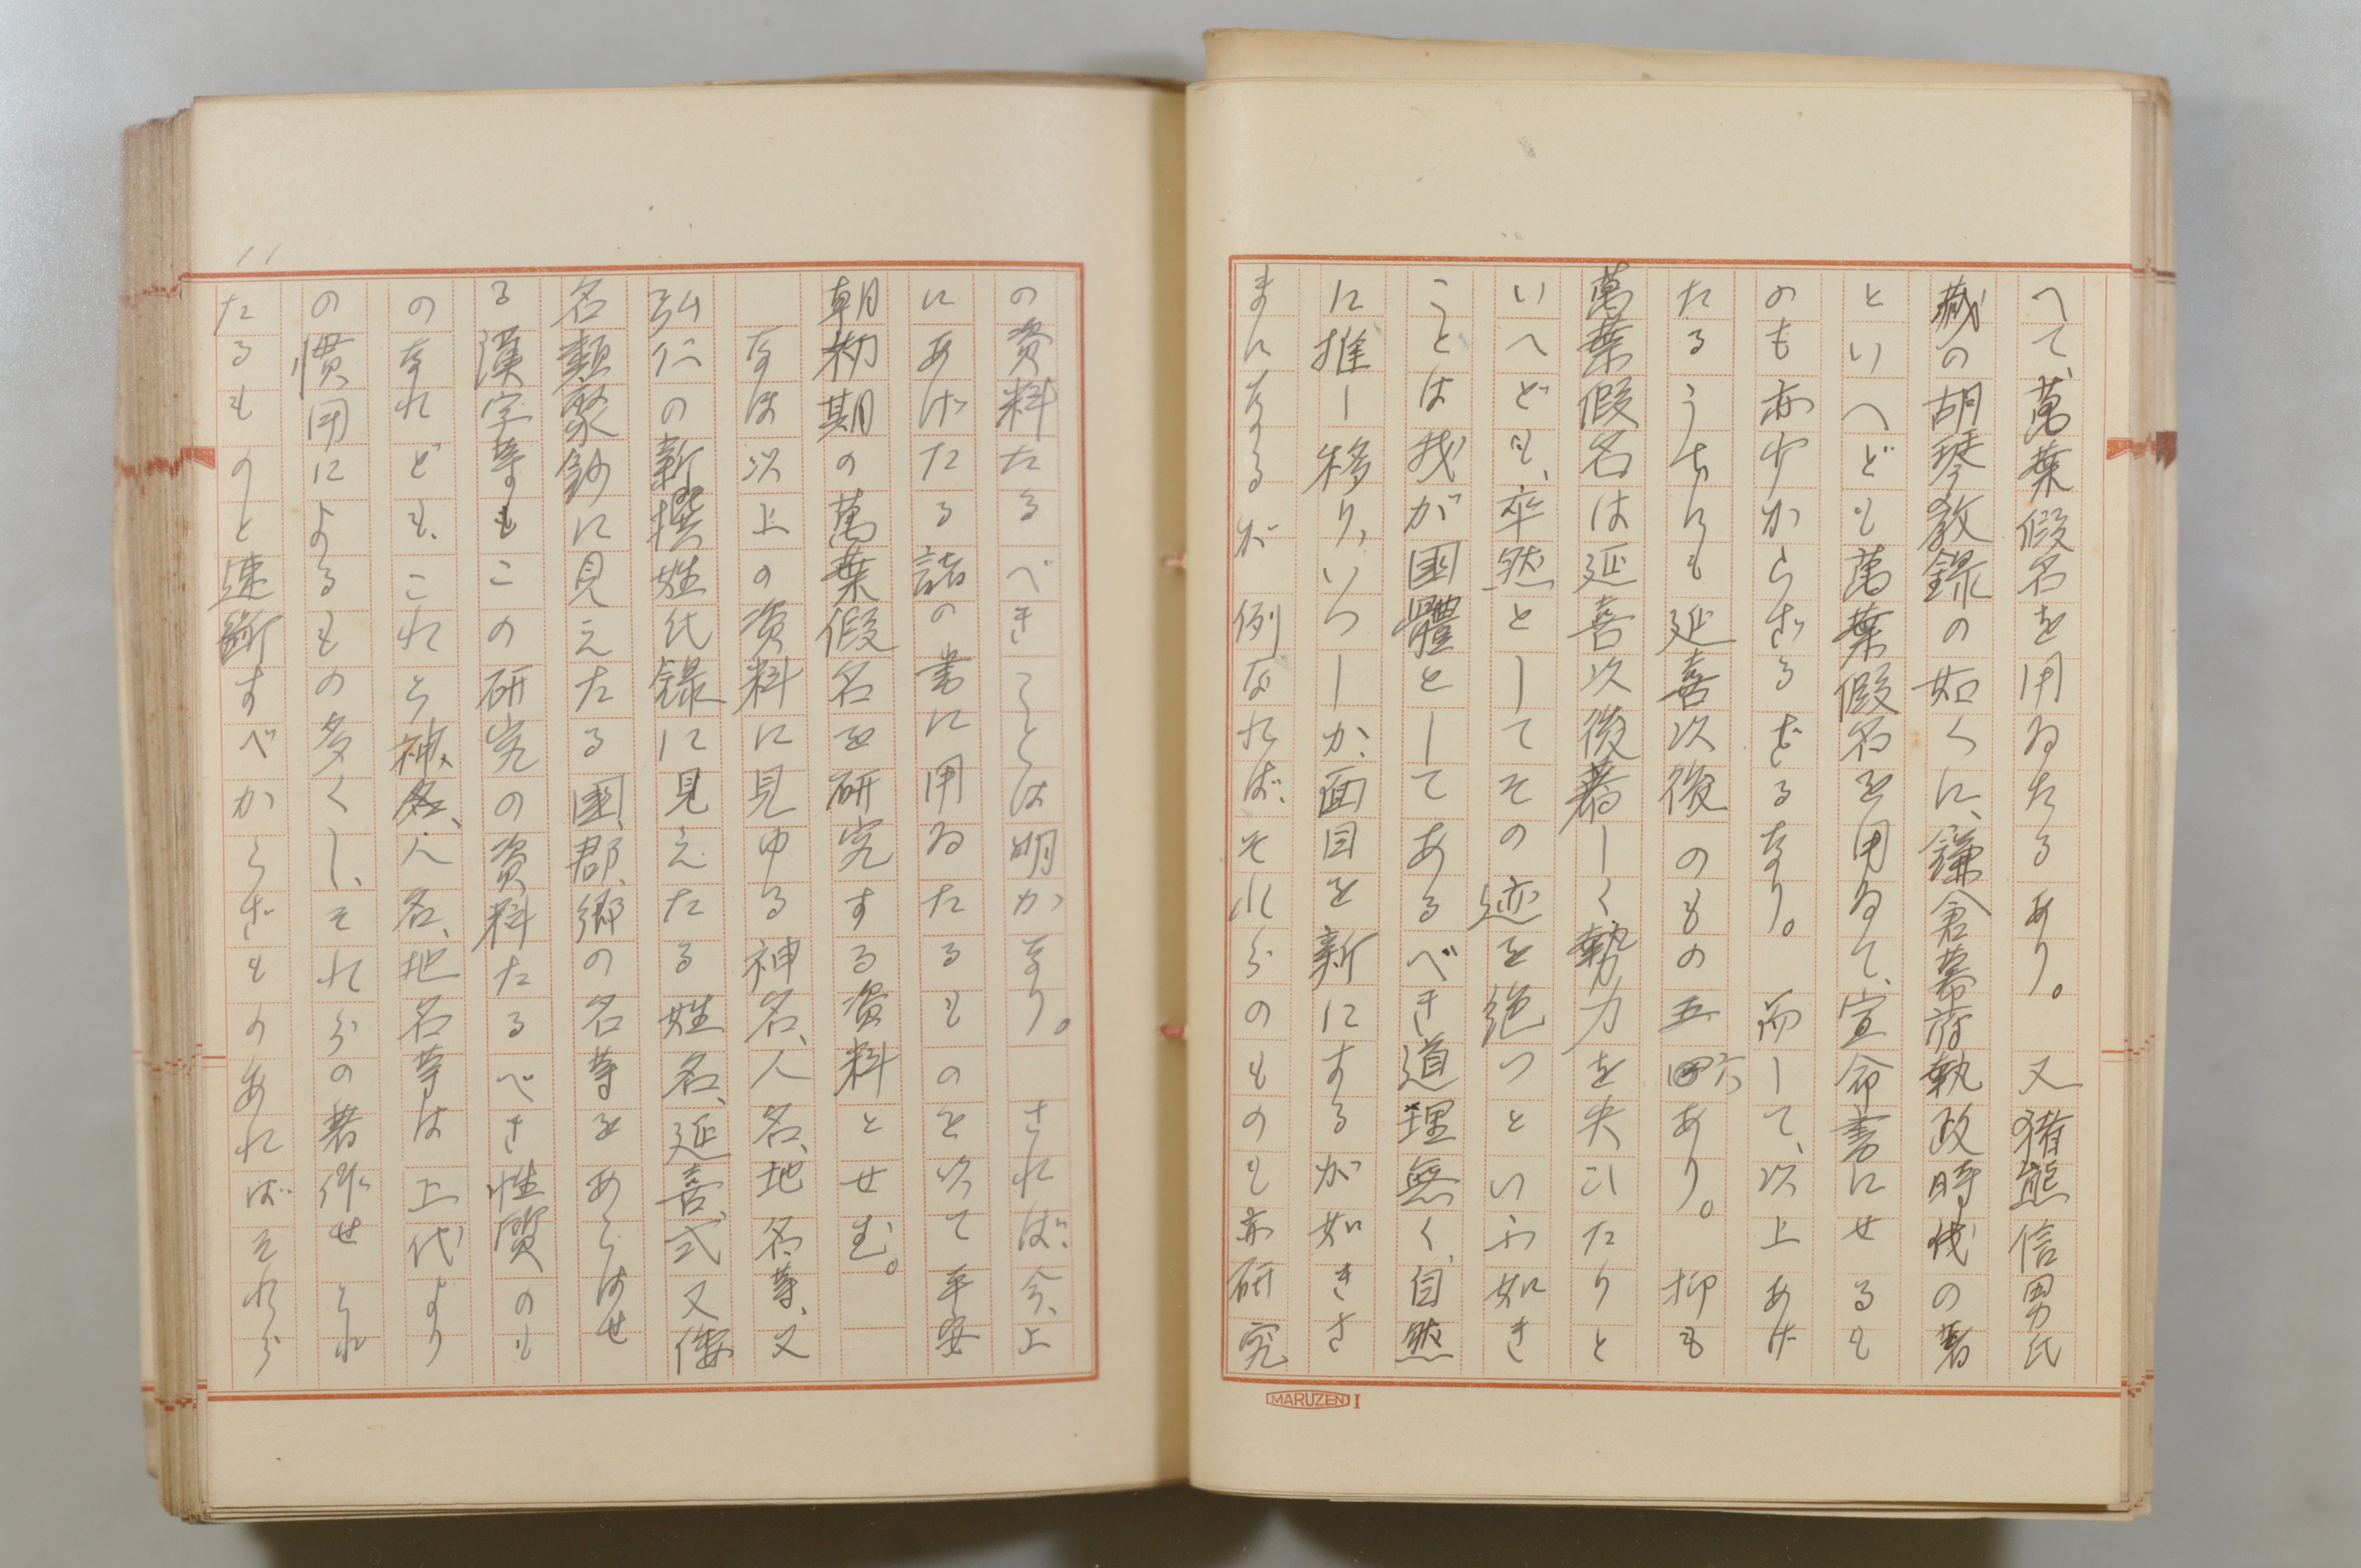 へて、萬葉假名を用ゐたるあり。又猪熊信男氏
藏の胡琴教錄の如くに、鎌倉幕府執政時代の著
といへども萬葉假名を用ゐて、宣命書にせるも
のも亦少からざるなり。而して、以上あげ
たるうちにも延喜以後のもの五六あり。抑も
萬葉假名は延喜以後著しく勢力を失ひたりと
いへども、卒然としてその迹を絶つといふ如き
ことは我が國體としてあるべき道理無く、自然
に推し移り、いつしか面目を新にするが如きさ
まになるが例なれば、それらのものも亦研究
MARUZEN I
の資料たるべきことは明かなり。されば、今、上
にあげたる諸の書に用ゐたるものを以て平安
朝初期の萬葉假名を研究する資料とせむ。
なほ以上の資料に見ゆる神名、人名、地名等、又
弘仁の新撰姓氏錄に見えたる姓名、延喜式又倭
名類聚鈔に見えたる國、郡、鄕の名等をあらはせ
る漢字等もこの研究の資料たるべき性質のも
のなれども、これら神名、人名、地名等は上代より
の慣用によるもの多くし、それらの著作せられ
たるものと速斷すべからざものあればそれら
11